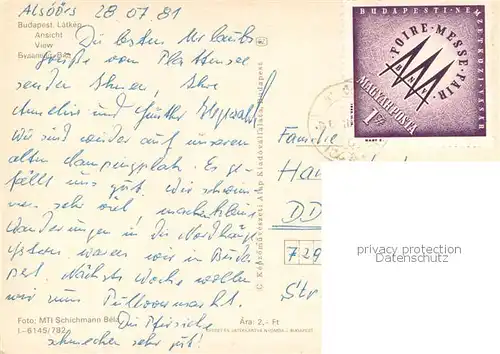 Alsóörs 28.07.81
Budapest. Látkép
Ansicht
View
Будапешт. Вид
Die besten Urlaubs
grüße vom Plattensee
senden Ihnen, Ihre
Annelies und Günther
Wir sind wieder auf unserem
alten Campingplatz. Es ge-
fällt uns gut. Wir schwim-
men sehr viel, machen kleine
Wanderungen in die
Gestern waren wir in Buda
pest. Nächste Woche wollen
wir zum Pullovermarkt.
Die Pfirsiche
schmecken sehr gut!
Foto: MTI Schichmann Béla
I-6145/782
Ára: 2,- Ft
C Képzőművészeti Alap Kiadóvállalata Budapest
BUDAPESTI NEMZETKÖZI VÁSÁR
FOIRE·MESSE·FAIR
BNV
MAGYAR POSTA
1 Ft
Familie
Ha
DD
729
Str
privacy protection
Sammlerdaten